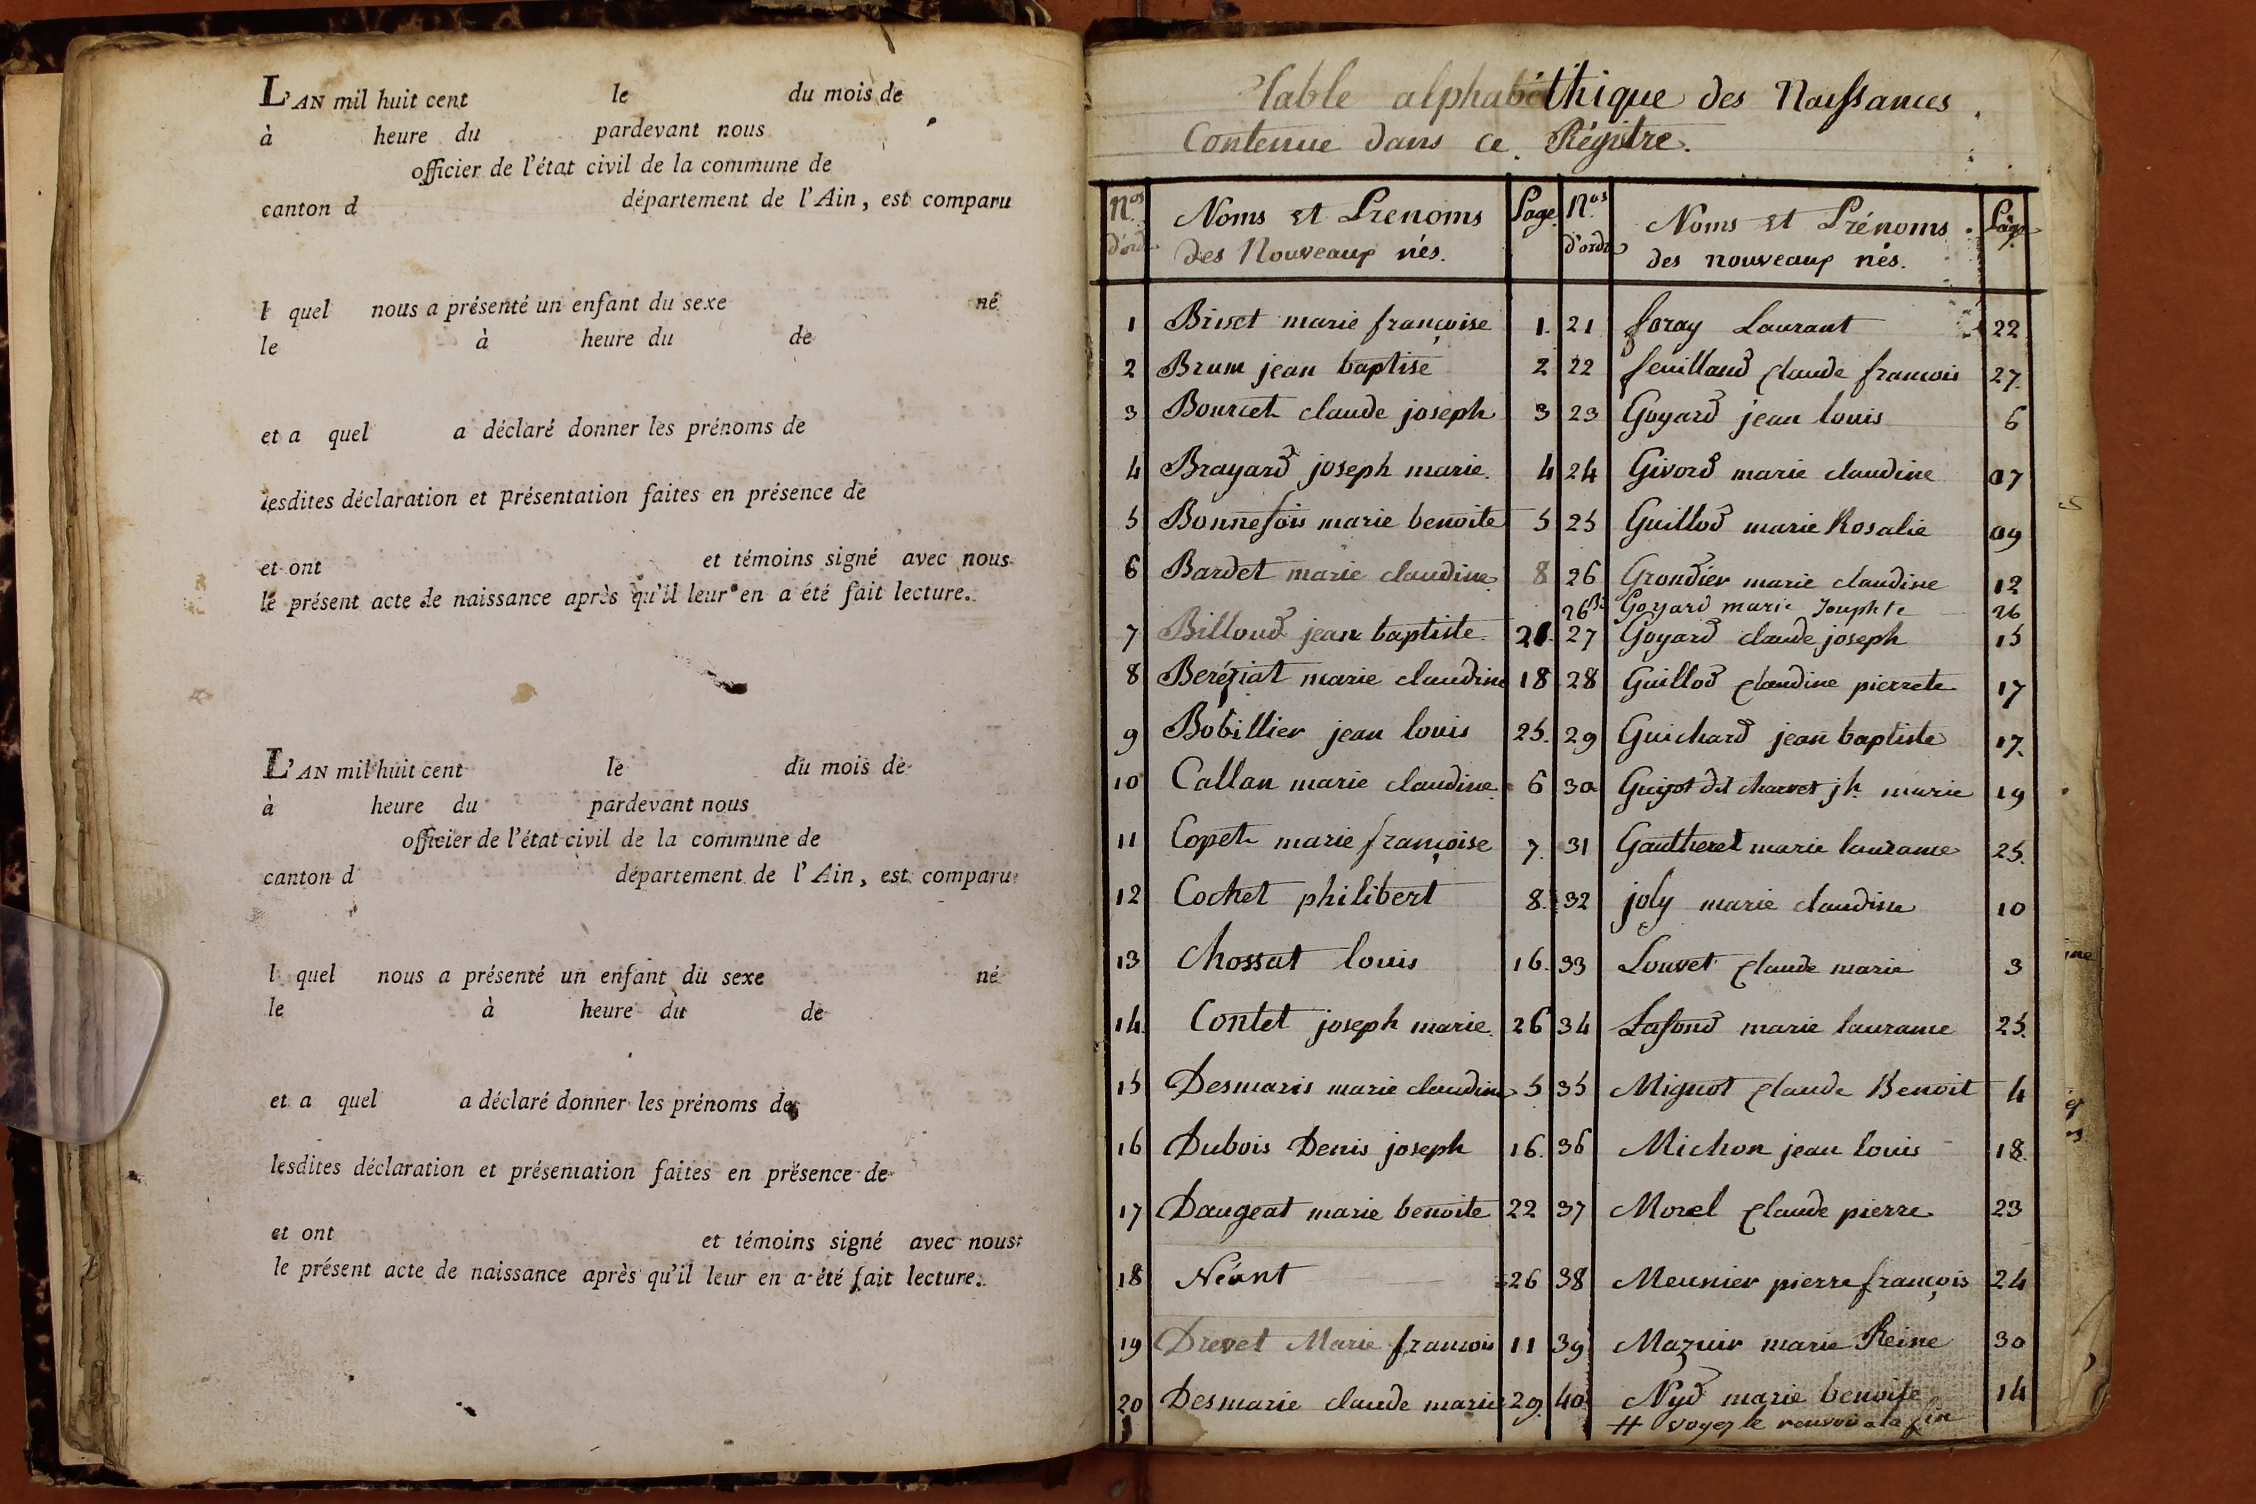 L'AN mil huit cent le du mois de
à heure du pardevant nous
officier de l'état civil de la commune de
canton d département de l'Ain, est comparu
l quel nous a présenté un enfant du sexe né
le à heure du de
et a quel a déclaré donner les prénoms de
lesdites déclaration et présentation faites en présence de
et ont et témoins signé avec nous
le présent acte de naissance après qu'il leur en a été fait lecture.
L'AN mil huit cent le du mois de
à heure du pardevant nous
officier de l'état civil de la commune de
canton d département de l'Ain, est comparu
l quel nous a présenté un enfant du sexe né
le à heure du de
et a quel a déclaré donner les prénoms de
lesdites déclaration et présentation faites en présence de
et ont et témoins signé avec nous
le présent acte de naissance après qu'il leur en a été fait lecture.
Table alphabéthique des Naissances
Contenue dans ce Régistre.
Nos d'ord Noms et Prenoms des Nouveaux nés. Page
1 Brivet marie françoise 1.
2 Brum jean baptise 2
3 Bourcet claude joseph 3
4 Brayard joseph marie. 4
5 Bonnefois marie benoite 5
6 Bardet marie claudine 8
7 Billoud jean baptiste 21.
8 Bereziat marie claudine 18
9 Bobillier jean louis 25.
10 Callan marie claudine 6
11 Copet marie françoise 7.
12 Cochet philibert 8.
13 Chossat louis 16.
14 Contet joseph marie. 26
15 Desmaris marie claudine 5
16 Dubois Denis joseph 16.
17 Daugeat marie benoite 22
18 Néant 26
19 Drevet Marie francois 11
20 Desmarie claude marie 29.
Nos d'ordre Noms et Prénoms des nouveaux nés. Page
21 foray Laurant 22
22 feuilland claude francois 27.
23 Goyard jean louis 6
24 Givord marie claudine 07
25 Guillod marie Rosalie 09
26 Grondier marie claudine 12
26 Bis Goyard marie Josephte 26
27 Goyard claude joseph 15
28 Guillod claudine pierrete 17
29 Guichard jean baptiste 17.
30 Guigot dit charvet jh. marie 19
31 Gautheret marie laurance 25.
32 joly marie claudine 10
33 Louvet claude marie 3
34 Lafond marie laurance 25.
35 Mignot claude Benoit 4
36 Michon jean louis 18.
37 Morel claude pierre 23
38 Meunier pierre françois 24
39 Mazuir marie Reine 30
40 Nyd marie benoite 14
# voyez le renvoi a la fin